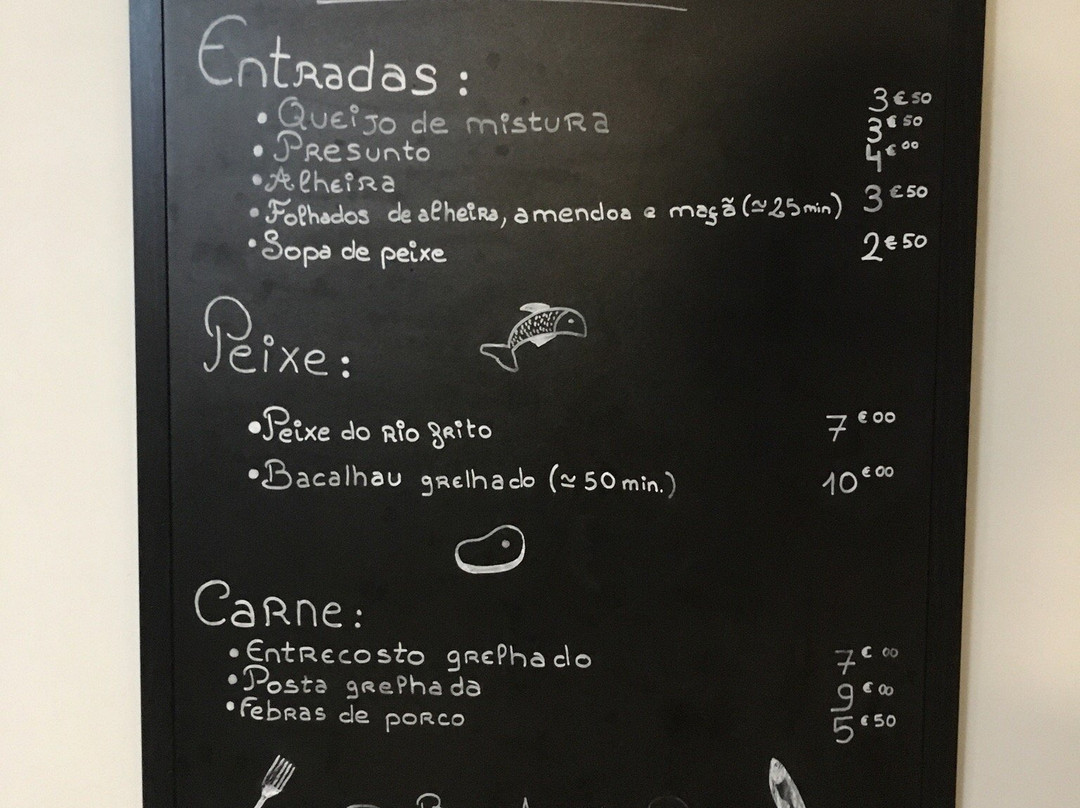 Entradas:
• Queijo de mistura 3€50
• Presunto 3€50
• Alheira 4€00
• Folhados de alheira, amendoa e maçã (≃25min) 3€50
• Sopa de peixe 2€50
Peixe:
• Peixe do rio frito 7€00
• Bacalhau grelhado (≃50min.) 10€00
Carne:
• Entrecosto grelhado 7€00
• Posta grelhada 9€00
• Febras de porco 5€50